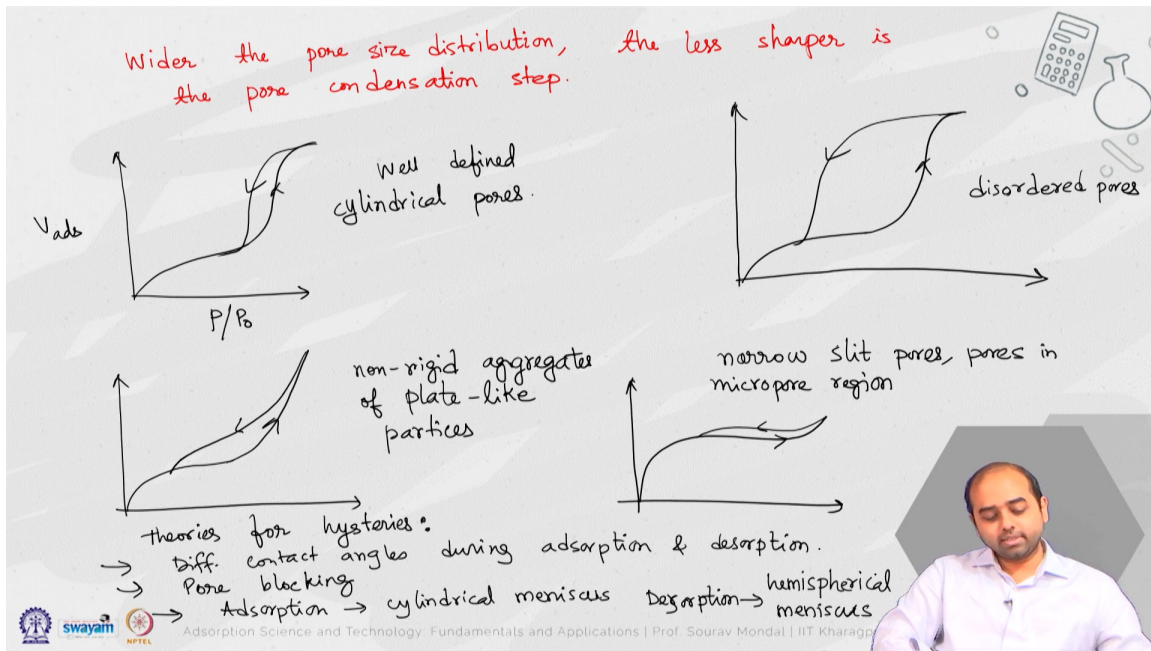 Wider the pore size distribution, the less sharper is
the pore condensation step.
Vads
P/P0
Well defined
cylindrical pores.
disordered pores
non-rigid aggregates
of plate-like
partices
narrow slit pores, pores in
micropore region
theories for hysteries:
→ Diff. contact angles during adsorption & desorption.
→ Pore blocking
→ Adsorption → cylindrical meniscus Desorption → hemispherical
meniscus
swayam
NPTEL
Adsorption Science and Technology: Fundamentals and Applications | Prof. Sourav Mondal | IIT Kharagp